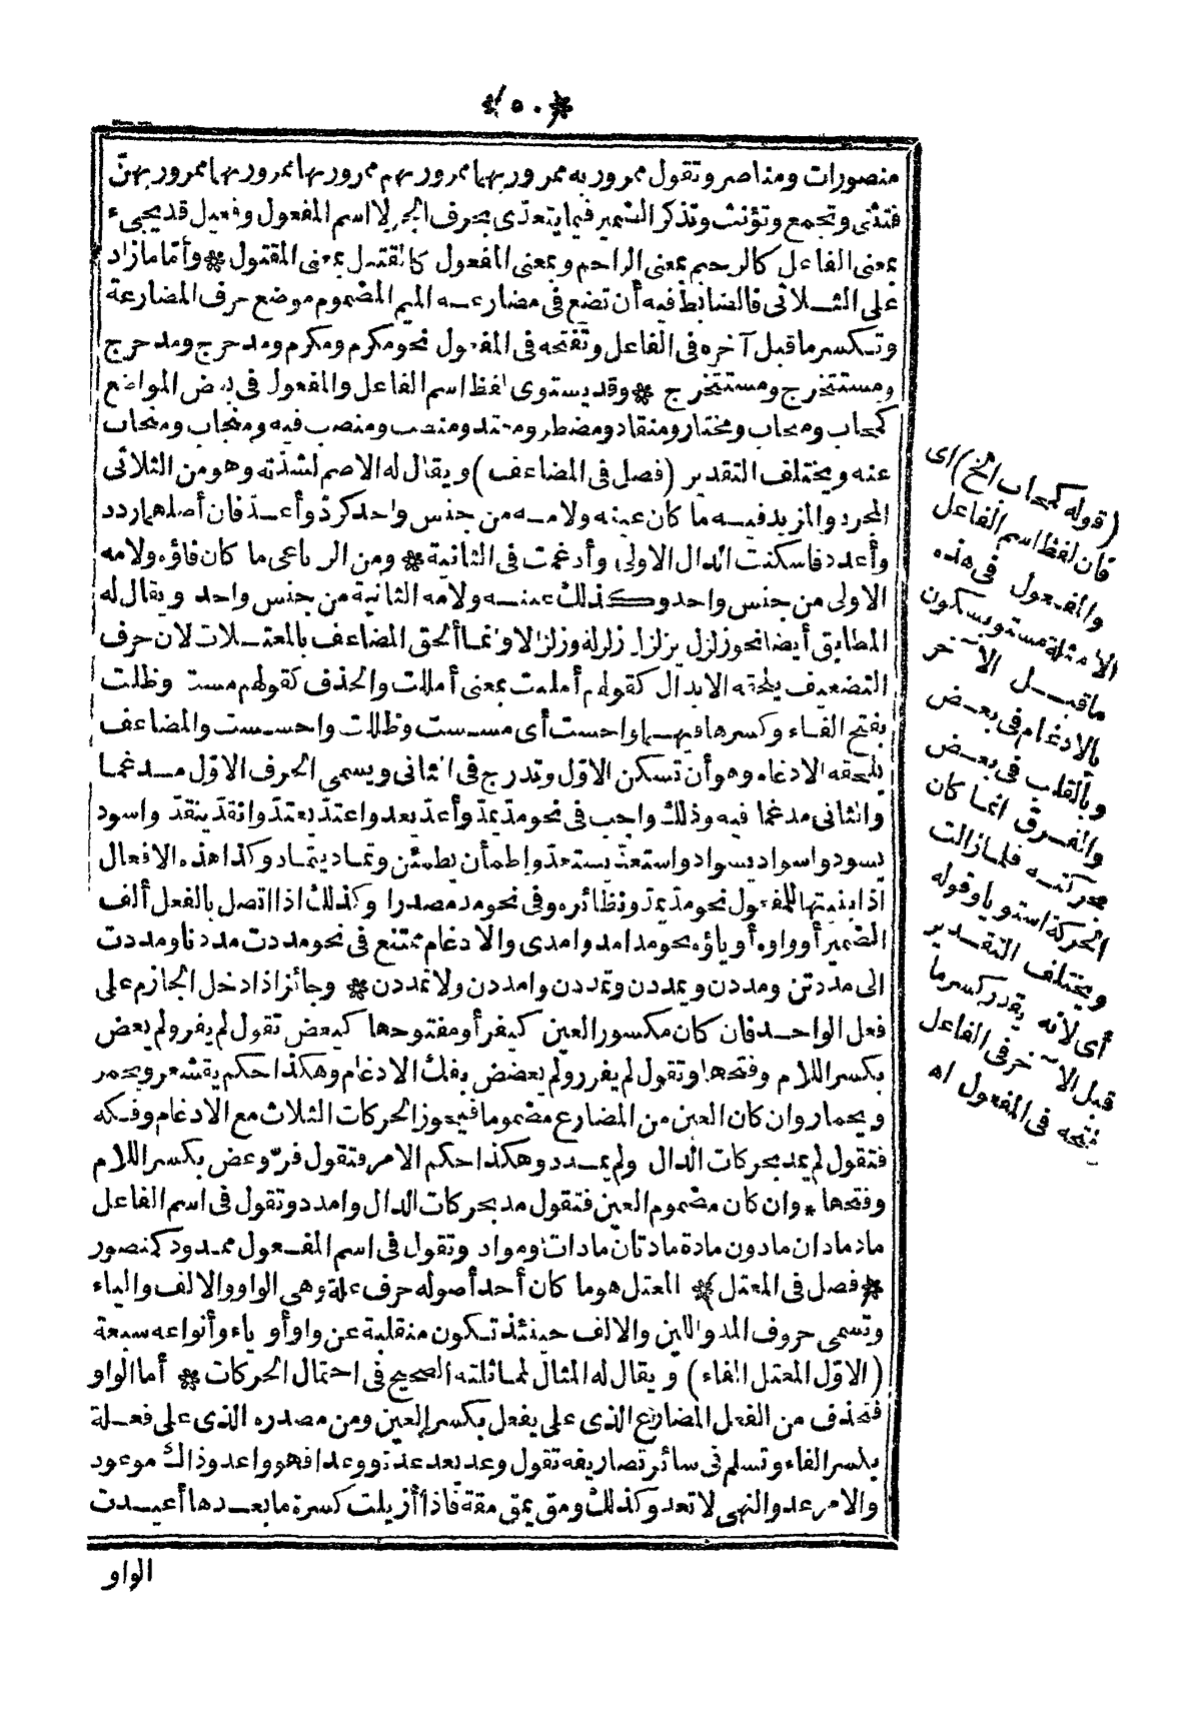 ﴿٥٠﴾
منصورات ومناصر وتقول ممرور به ممرور بهما ممرور بهم ممرور بها ممرور بهما ممرور بهنّ
فتثنى وتجمع وتؤنث وتذكر الضمير فيما يتعدّى بحرف الجر لا اسم المفعول وفعيل قد يجىء
بمعنى الفاعل كالرحيم بمعنى الراحم وبمعنى المفعول كالقتيل بمعنى المقتول * وأمّا ما زاد
على الثلاثى فالضابط فيه أن تضع فى مضارعه الميم المضموم موضع حرف المضارعة
وتكسر ما قبل آخره فى الفاعل وتفتحه فى المفعول نحو مكرم ومكرم ومدحرج ومدحرج
ومستخرج ومستخرج * وقد يستوى لفظ اسم الفاعل والمفعول فى بعض المواضع
كمحاب ومحاب ومختار ومنقاد ومضطر ومعتد ومنصب ومنصب فيه ومنجاب ومنجاب
عنه ويختلف التقدير (فصل فى المضاعف) ويقال له الاصم لشدّته وهو من الثلاثى
المجرد والمزيد فيه ما كان عينه ولامه من جنس واحد كردّ وأعدّ فان أصلهما ردد
وأعدد فاسكنت الدال الاولى وأدغمت فى الثانية * ومن الرباعى ما كان فاؤه ولامه
الاولى من جنس واحد وكذلك عينه ولامه الثانية من جنس واحد ويقال له
المطابق أيضا نحو زلزل يزلزل زلزلة وزلزالا وانما ألحق المضاعف بالمعتلات لان حرف
التضعيف يلحقه الابدال كقولهم أمليت بمعنى أمللت والحذف كقولهم مست وظلت
بفتح الفاء وكسرها فيهما واحست أى مسست وظللت واحسست والمضاعف
يلحقه الادغام وهو أن تسكن الاوّل وتدرج فى الثانى ويسمى الحرف الاوّل مدغما
والثانى مدغما فيه وذلك واجب فى نحو مدّ يمدّ وأعدّ يعد واعتدّ يعتدّ وانقدّ ينقدّ واسود
يسود واسواد يسواد واستعدّ يستعدّ واطمأن يطمئن وتماد يتماد وكذا هذه الافعال
اذا بنيتها للمفعول نحو مدّ يمدّ ونظائره وفى نحو مد مصدرا وكذلك اذا اتصل بالفعل ألف
الضمير أو واوه أو ياؤه نحو مدا مدوا مدى والادغام ممتنع فى نحو مددت مددنا ومددت
الى مددتن ومددن ويمددن وتمددن وامددن ولا تمددن * وجائز اذا دخل الجازم على
فعل الواحد فان كان مكسور العين كيفر أو مفتوحها كيعض تقول لم يفر ولم يعض
بكسر اللام وفتحها وتقول لم يفرر ولم يعضض بفك الادغام وهكذا حكم يقشعر ويحمر
ويحمار وان كان العين من المضارع مضموما فيجوز الحركات الثلاث مع الادغام وفكه
فتقول لم يمد بحركات الدال ولم يمدد وهكذا حكم الامر فتقول فرّ وعض بكسر اللام
وفتحها * وان كان مضموم العين فتقول مد بحركات الدال وامدد وتقول فى اسم الفاعل
مادّ مادان مادون مادة مادتان مادات ومواد وتقول فى اسم المفعول ممدود كمنصور
﴿فصل فى المعتل﴾ المعتل هو ما كان أحد أصوله حرف علة وهى الواو والالف والياء
وتسمى حروف المد واللين والالف حينئذ تكون منقلبة عن واو أو ياء وأنواعه سبعة
(الاوّل المعتل الفاء) ويقال له المثال لمماثلته الصحيح فى احتمال الحركات * أما الواو
فتحذف من الفعل المضارع الذى على يفعل بكسر العين ومن مصدره الذى على فعلة
بكسر الفاء وتسلم فى سائر تصاريفه تقول وعد يعد عدة ووعدا فهو واعد وذاك موعود
والامر عد والنهى لا تعد وكذلك ومق يمق مقة فاذا أزيلت كسرة ما بعدها أعيدت
الواو
(قوله كمحاب الخ) اى
فان لفظ اسم الفاعل
والمفعول فى هذه
الامثلة مستو بسكون
ما قبل الآخر
بالادغام فى بعض
وبالقلب فى بعض
والفرق انما كان
بحركته فلما زالت
الحركة استويا وقوله
ويختلف التقدير
أى لانه يقدر كسر ما
قبل الآخر فى الفاعل
فتحه فى المفعول اه